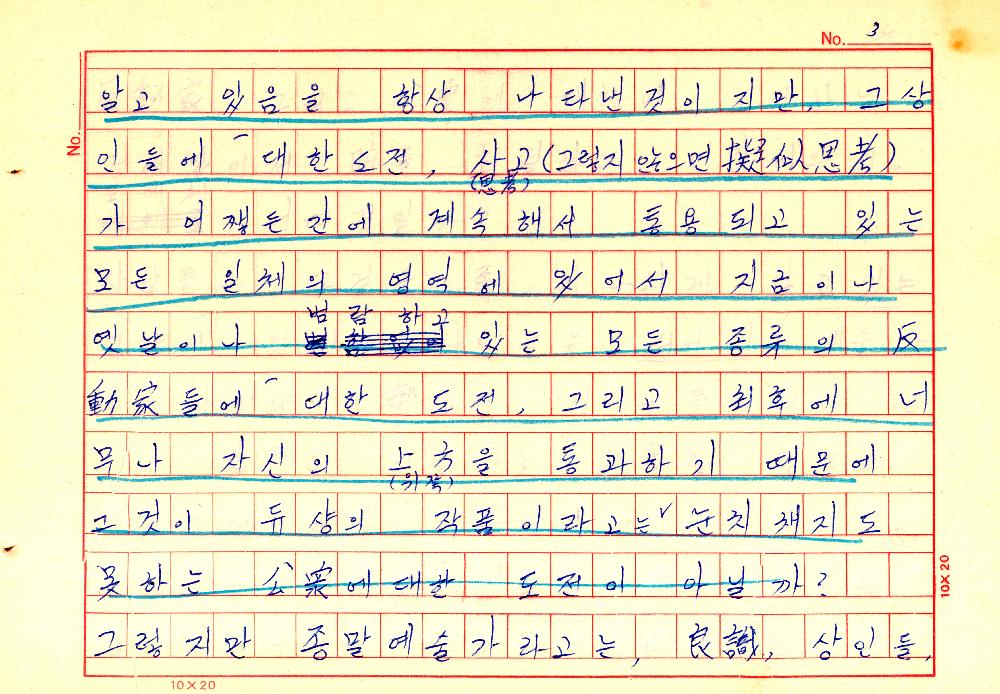 No. 3
No.
알고 있음을 항상 나타낸것이지만, 그상
인들에 대한도전, 사고(그렇지않으면 擬似思考)
(思考)
가 어쨌든간에 계속해서 통용되고 있는
모든 일체의 영역에 있어서 지금이나
범람하고
옛날이나 있는 모든 종류의 反
動家들에 대한 도전, 그리고 최후에 너
무나 자신의 上추을 통과하기 때문에
그것이 듀샹의 작품이라고는 눈치채지도
못하는 公衆에대한 도전이 아닐까?
그렇지만 종말예술가라고는, 良識, 상인들,
10×20
10×20